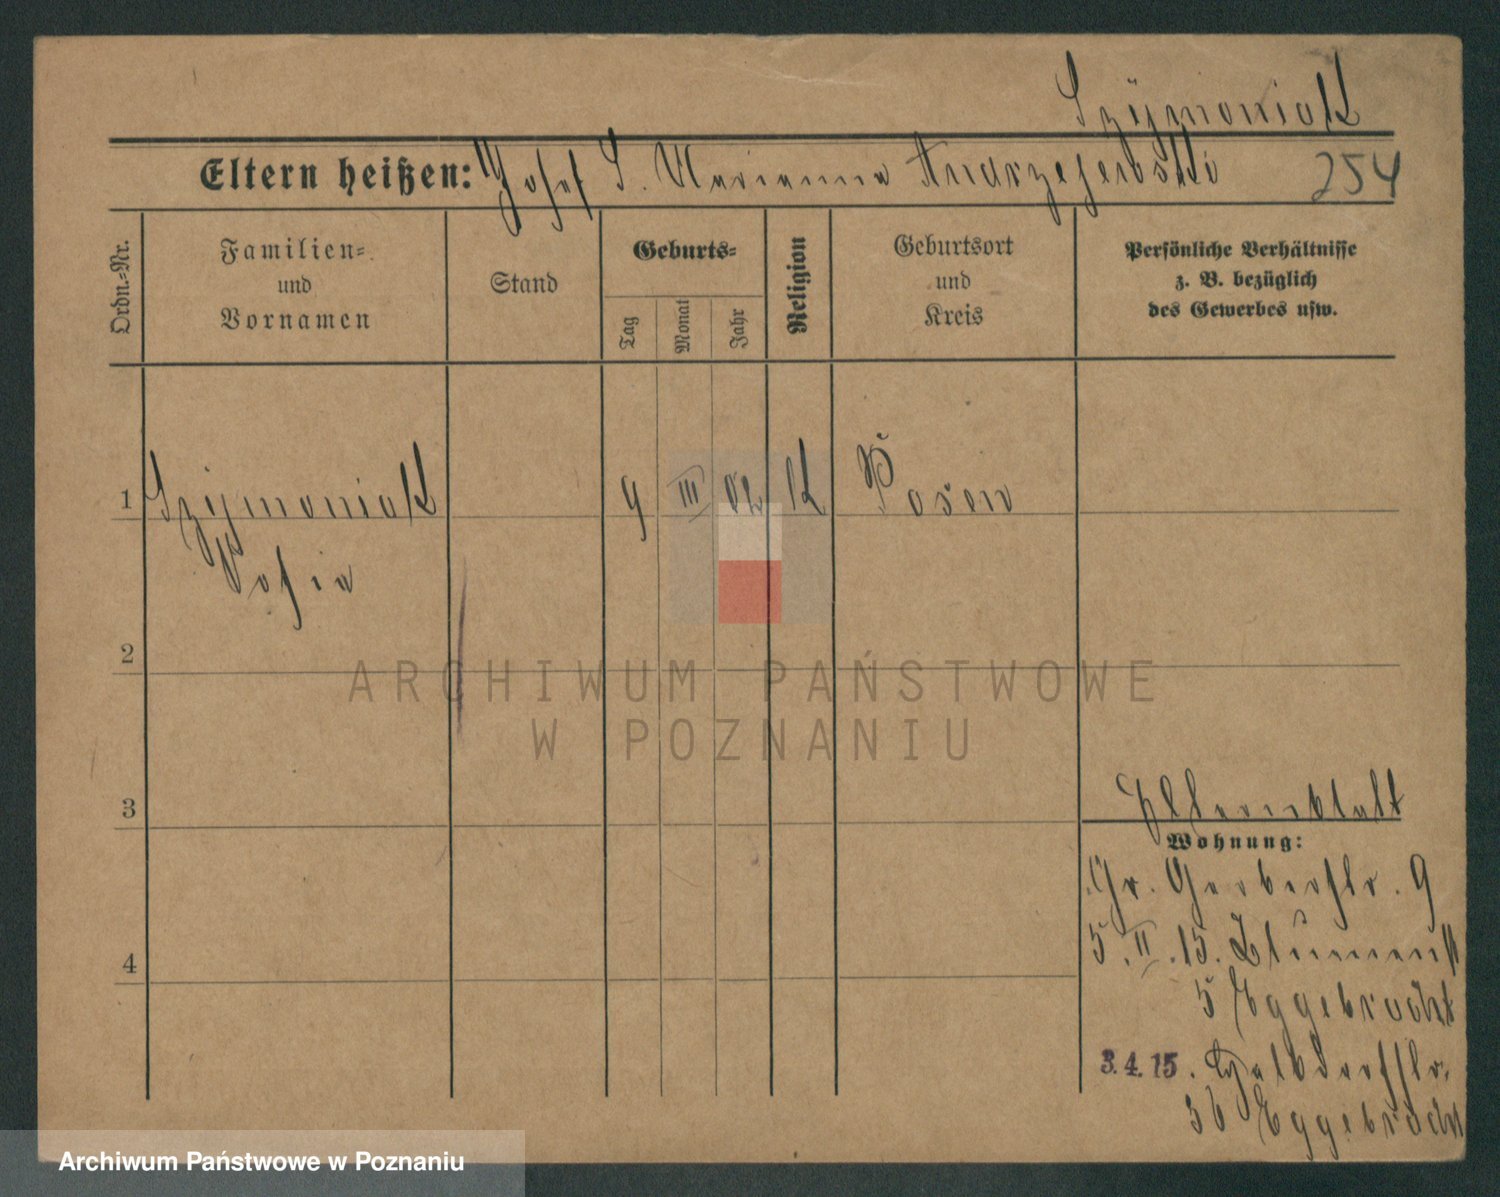 Szÿmoniak
Eltern heißen: Josef S. Marianna Andrzejewski
254
Ordn.-Nr.
Familien-
und
Vornamen
Stand
Geburts-
Tag
Monat
Jahr
Religion
Geburtsort
und
Kreis
Persönliche Verhältnisse
z. B. bezüglich
des Gewerbes usw.
1 Szymoniak 9 III 02 K Posen
Sofie
2
ARCHIWUM PAŃSTWOWE
W POZNANIU
3 Elternblatt
Wohnung:
Gr. Gerberstr. 9
5.II.15. Blumenst
4
5 Eggebrecht
3.4.15. Halbdorfstr.
36 Eggebrecht
Archiwum Państwowe w Poznaniu